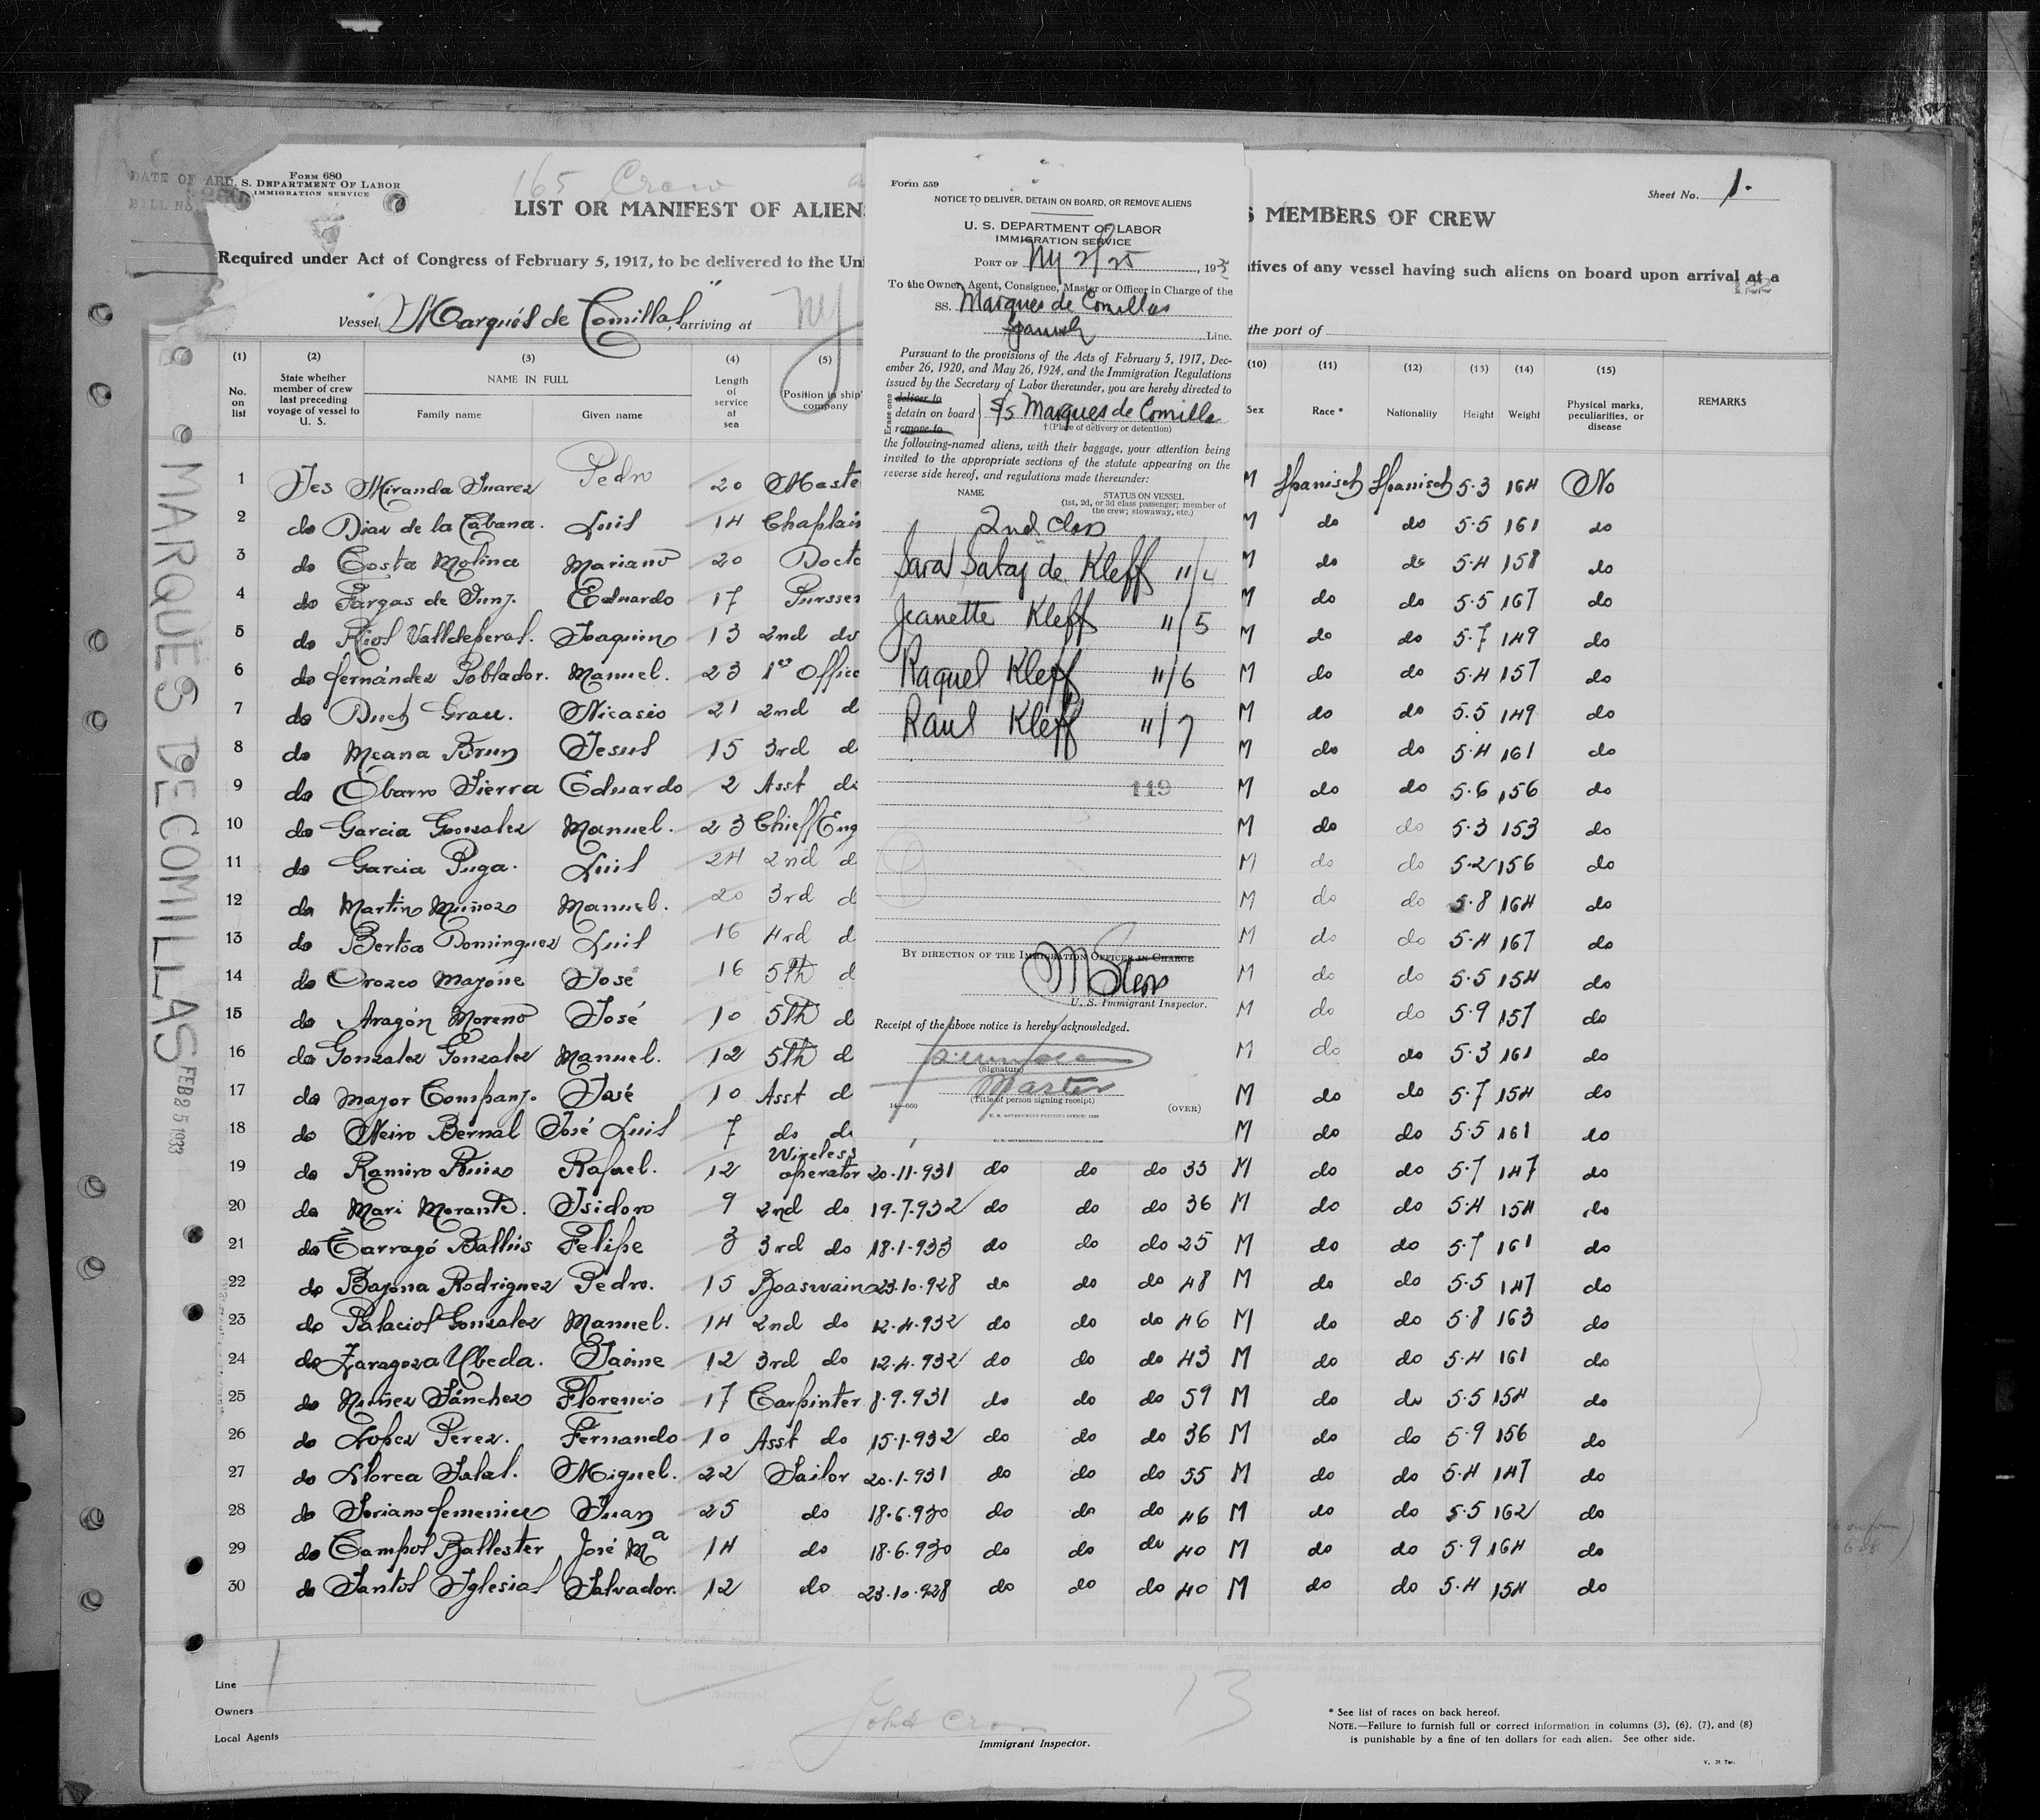 DATE OF ARR
BILL No.
Form 680
U. S. DEPARTMENT OF LABOR
IMMIGRATION SERVICE
165 Crew
Sheet No. 1.
LIST OR MANIFEST OF ALIENS
S MEMBERS OF CREW
Required under Act of Congress of February 5, 1917, to be delivered to the Uni
tives of any vessel having such aliens on board upon arrival at a
122
Vessel "Marqués de Comillas", arriving at NY
the port of
(1) (2) (3) (4) (5) (10) (11) (12) (13) (14) (15)
No. on list
State whether member of crew last preceding voyage of vessel to U. S.
NAME IN FULL
Family name Given name
Length of service at sea
Position in ship's company
Sex Race * Nationality Height Weight
Physical marks, peculiarities, or disease
REMARKS
1 Yes Miranda Suarez Pedro 20 Maste M Spanish Spanish 5.3 164 No
2 do Diaz de la Cabana. Luis 14 Chaplain M do do 5.5 161 do
3 do Costa Molina Mariano 20 Docto M do do 5.4 158 do
4 do Fargas de Juny. Eduardo 17 Pursser M do do 5.5 167 do
5 do Riol Valldeperas. Joaquin 13 2nd do M do do 5.7 149 do
6 do Fernández Poblador. Manuel. 23 1º Office M do do 5.4 157 do
7 do Duch Grau. Nicasio 21 2nd d M do do 5.5 149 do
8 do Meana Brun Jesus 15 3rd d M do do 5.4 161 do
9 do Obarro Sierra Eduardo 2 Asst do M do do 5.6 156 do
10 do Garcia Gonzalez Manuel. 23 Chieff Eng M do do 5.3 153 do
11 do Garcia Puga. Luis 24 2nd d M do do 5.2 156 do
12 do Martin Muñoz Manuel. 20 3rd d M do do 5.8 164 do
13 do Bertoa Dominguez Luis 16 4rd d M do do 5.4 167 do
14 do Orozco Mayone José 16 5th d M do do 5.5 154 do
15 do Aragón Moreno José 10 5th d M do do 5.9 157 do
16 do Gonzalez Gonzalez Manuel. 12 5th d M do do 5.3 161 do
17 do Mayor Company. José 10 Asst d M do do 5.7 154 do
18 do Neiro Bernal José Luis 7 do do M do do 5.5 161 do
19 do Ramiro Ruiz Rafael. 12 Wireless operator 20.11.931 do do do 35 M do do 5.7 147 do
20 do Mari Morante. Isidoro 9 2nd do 19.7.932 do do do 36 M do do 5.4 154 do
21 do Tarragó Ballús Felipe 3 3rd do 18.1.933 do do do 25 M do do 5.7 161 do
22 do Bayona Rodriguez Pedro. 15 Boaswain 23.10.928 do do do 48 M do do 5.5 147 do
23 do Palacios Gonzalez Manuel. 14 2nd do 12.4.932 do do do 46 M do do 5.8 163 do
24 do Zaragoza Ubeda. Jaime 12 3rd do 12.4.932 do do do 43 M do do 5.4 161 do
25 do Nuñez Sánchez Florencio 17 Carpinter 8.9.931 do do do 59 M do do 5.5 154 do
26 do Lopez Perez. Fernando 10 Asst do 15.1.932 do do do 36 M do do 5.9 156 do
27 do Llorca Salal. Miguel. 22 Sailor 20.1.931 do do do 55 M do do 5.4 147 do
28 do Soriano Femenia Juan 25 do 18.6.930 do do do 46 M do do 5.5 162 do
29 do Campos Ballester José Mª 14 do 18.6.930 do do do 40 M do do 5.9 164 do
30 do Santos Iglesias Salvador. 12 do 23.10.928 do do do 40 M do do 5.4 154 do
Form 559
NOTICE TO DELIVER, DETAIN ON BOARD, OR REMOVE ALIENS
U. S. DEPARTMENT OF LABOR
IMMIGRATION SERVICE
PORT OF NY 2/25, 193
To the Owner, Agent, Consignee, Master or Officer in Charge of the
SS. Marques de Comillas
Spanish Line.
Pursuant to the provisions of the Acts of February 5, 1917, Dec-
ember 26, 1920, and May 26, 1924, and the Immigration Regulations
issued by the Secretary of Labor thereunder, you are hereby directed to
Erase one
deliver to
detain on board
remove to
S/S Marques de Comilla
†(Place of delivery or detention)
the following-named aliens, with their baggage, your attention being
invited to the appropriate sections of the statute appearing on the
reverse side hereof, and regulations made thereunder:
NAME
STATUS ON VESSEL
(1st, 2d, or 3d class passenger; member of
the crew; stowaway, etc.)
2nd class
Sara Sabaj de Kleff 11/4
Jeanette Kleff 11/5
Raquel Kleff 11/6
Raul Kleff 11/7
119
BY DIRECTION OF THE IMMIGRATION OFFICER IN CHARGE
U. S. Immigrant Inspector.
Receipt of the above notice is hereby acknowledged.
(Signature)
Master
(Title of person signing receipt)
14—660
U. S. GOVERNMENT PRINTING OFFICE: 1930
(OVER)
MARQUES DE COMILLAS
FEB 25 1933
Line
Owners
Local Agents
John Cron
Immigrant Inspector.
13
* See list of races on back hereof.
NOTE.—Failure to furnish full or correct information in columns (3), (6), (7), and (8)
is punishable by a fine of ten dollars for each alien. See other side.